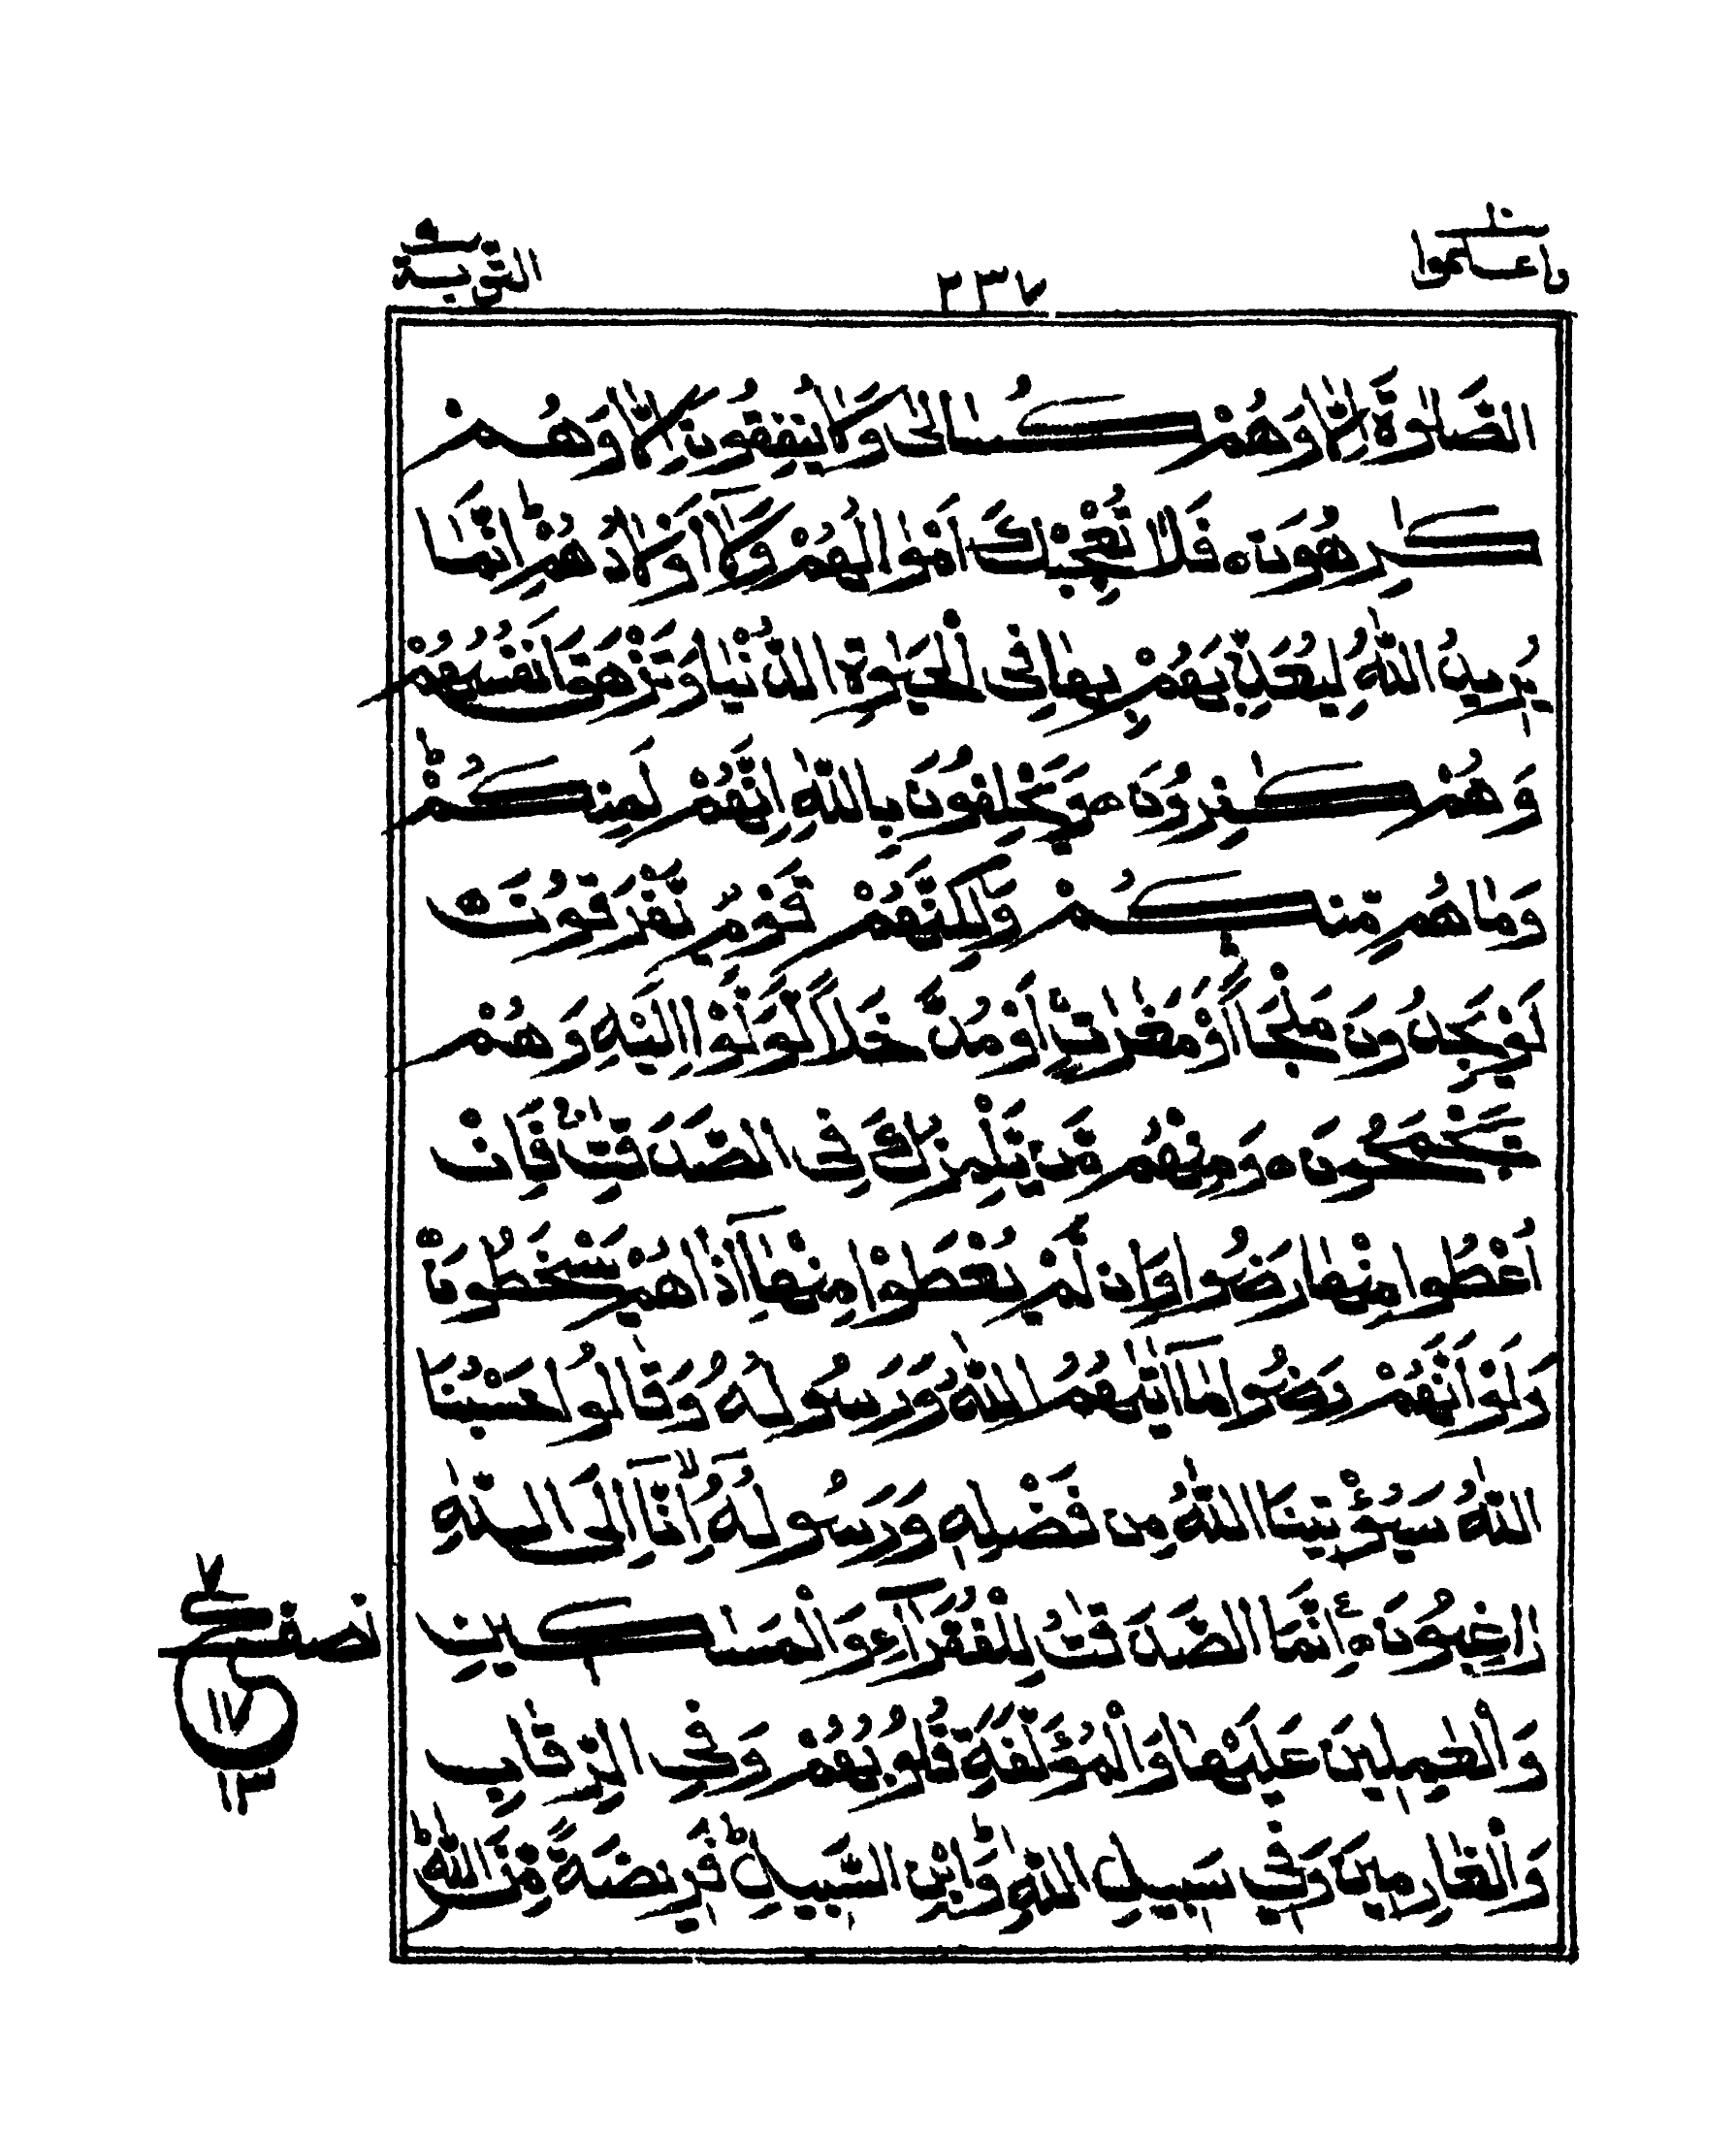 واعلموا ١٠
٢٣٧
التوبة ٩
الصَّلٰوةَ اِلَّا وَهُمْ كُسَالٰى وَلَا يُنْفِقُوْنَ اِلَّا وَهُمْ
كٰرِهُوْنَ ۝ فَلَا تُعْجِبْكَ اَمْوَالُهُمْ وَلَآ اَوْلَادُهُمْ ؕ اِنَّمَا
يُرِيْدُ اللّٰهُ لِيُعَذِّبَهُمْ بِهَا فِي الْحَيٰوةِ الدُّنْيَا وَتَزْهَقَ اَنْفُسُهُمْ
وَهُمْ كٰفِرُوْنَ ۝ وَيَحْلِفُوْنَ بِاللّٰهِ اِنَّهُمْ لَمِنْكُمْ ؕ
وَمَا هُمْ مِّنْكُمْ وَلٰكِنَّهُمْ قَوْمٌ يَّفْرَقُوْنَ ۝
لَوْ يَجِدُوْنَ مَلْجَاً اَوْ مَغٰرٰتٍ اَوْ مُدَّخَلًا لَّوَلَّوْا اِلَيْهِ وَهُمْ
يَجْمَحُوْنَ ۝ وَمِنْهُمْ مَّنْ يَّلْمِزُكَ فِي الصَّدَقٰتِ ۚ فَاِنْ
اُعْطُوْا مِنْهَا رَضُوْا وَاِنْ لَّمْ يُعْطَوْا مِنْهَآ اِذَا هُمْ يَسْخَطُوْنَ ۝
وَلَوْ اَنَّهُمْ رَضُوْا مَآ اٰتٰىهُمُ اللّٰهُ وَرَسُوْلُهٗ وَقَالُوْا حَسْبُنَا
اللّٰهُ سَيُؤْتِيْنَا اللّٰهُ مِنْ فَضْلِهٖ وَرَسُوْلُهٗٓ ۙ اِنَّآ اِلَى اللّٰهِ
رَاغِبُوْنَ ۝ اِنَّمَا الصَّدَقٰتُ لِلْفُقَرَآءِ وَالْمَسٰكِيْنِ
وَالْعٰمِلِيْنَ عَلَيْهَا وَالْمُؤَلَّفَةِ قُلُوْبُهُمْ وَفِي الرِّقَابِ
وَالْغَارِمِيْنَ وَفِيْ سَبِيْلِ اللّٰهِ وَابْنِ السَّبِيْلِ ؕ فَرِيْضَةً مِّنَ اللّٰهِ ؕ
٧
نصف
ع
١٧
١٣